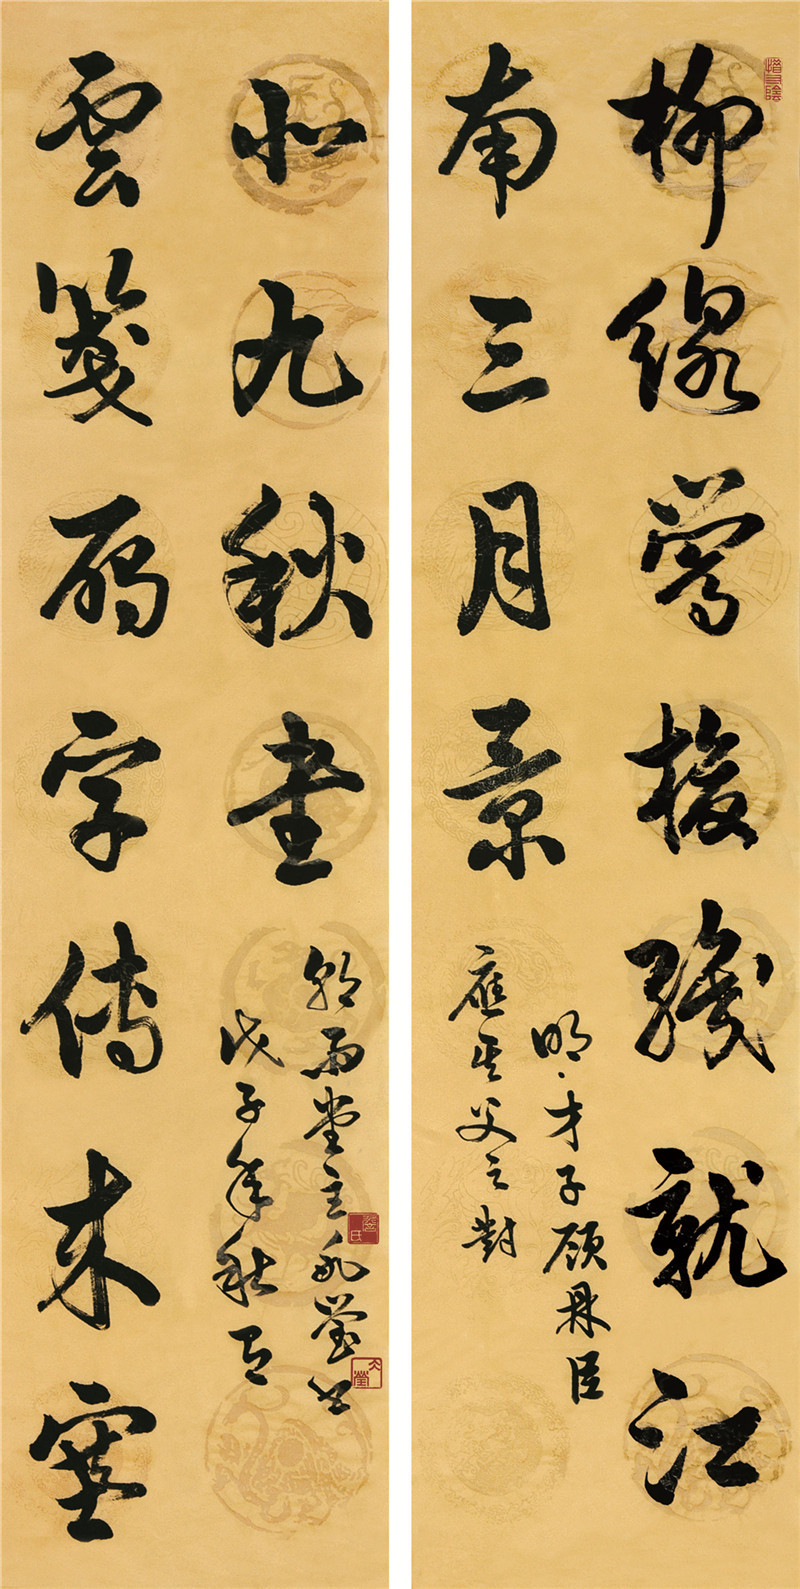 柳線鶯梭織就江
南三月景
明·才子顧鼎臣
應其父之對
雲箋雁字傳來塞
北九秋書
雨堂主
戊子年秋月